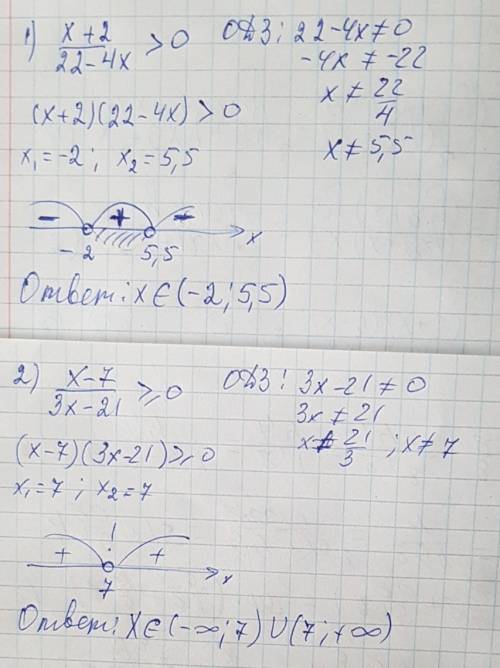 1) (x+2)/(22-4x) > 0 ОДЗ: 22-4x≠0
-4x ≠ -22
x ≠ 22/4
(x+2)(22-4x) > 0
x₁=-2; x₂=5,5 x≠5,5
- + -
-2 5,5 x
Ответ: x∈(-2; 5,5)
2) (x-7)/(3x-21) ≥ 0 ОДЗ: 3x-21≠0
3x≠21
x≠21/3; x≠7
(x-7)(3x-21) ≥ 0
x₁=7; x₂=7
+ +
7 x
Ответ: x∈(-∞; 7)∪(7; +∞)